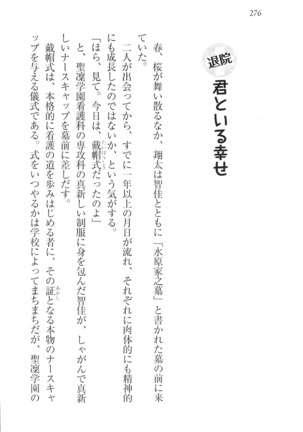 276
退院
君といる幸せ
春、桜が舞い散るなか、翔太は智佳とともに「永原家之墓」と書かれた墓の前に来
ていた。
二人が出会ってから、すでに一年以上の月日が流れ、それぞれに肉体的にも精神的
にも成長したのではないか、という気がする。
「ほら、見て。今日は、戴帽式だったのよ」
と、聖凜学園看護科の専攻科の真新しい制服に身を包んだ智佳が、しゃがんで真新
しいナースキャップを墓前に差しだす。
戴帽式は、本格的に看護の道を歩みはじめる者に、その証となる本物のナースキャ
ップを与える儀式である。式をいつやるかは学校によってまちまちだが、聖凜学園の